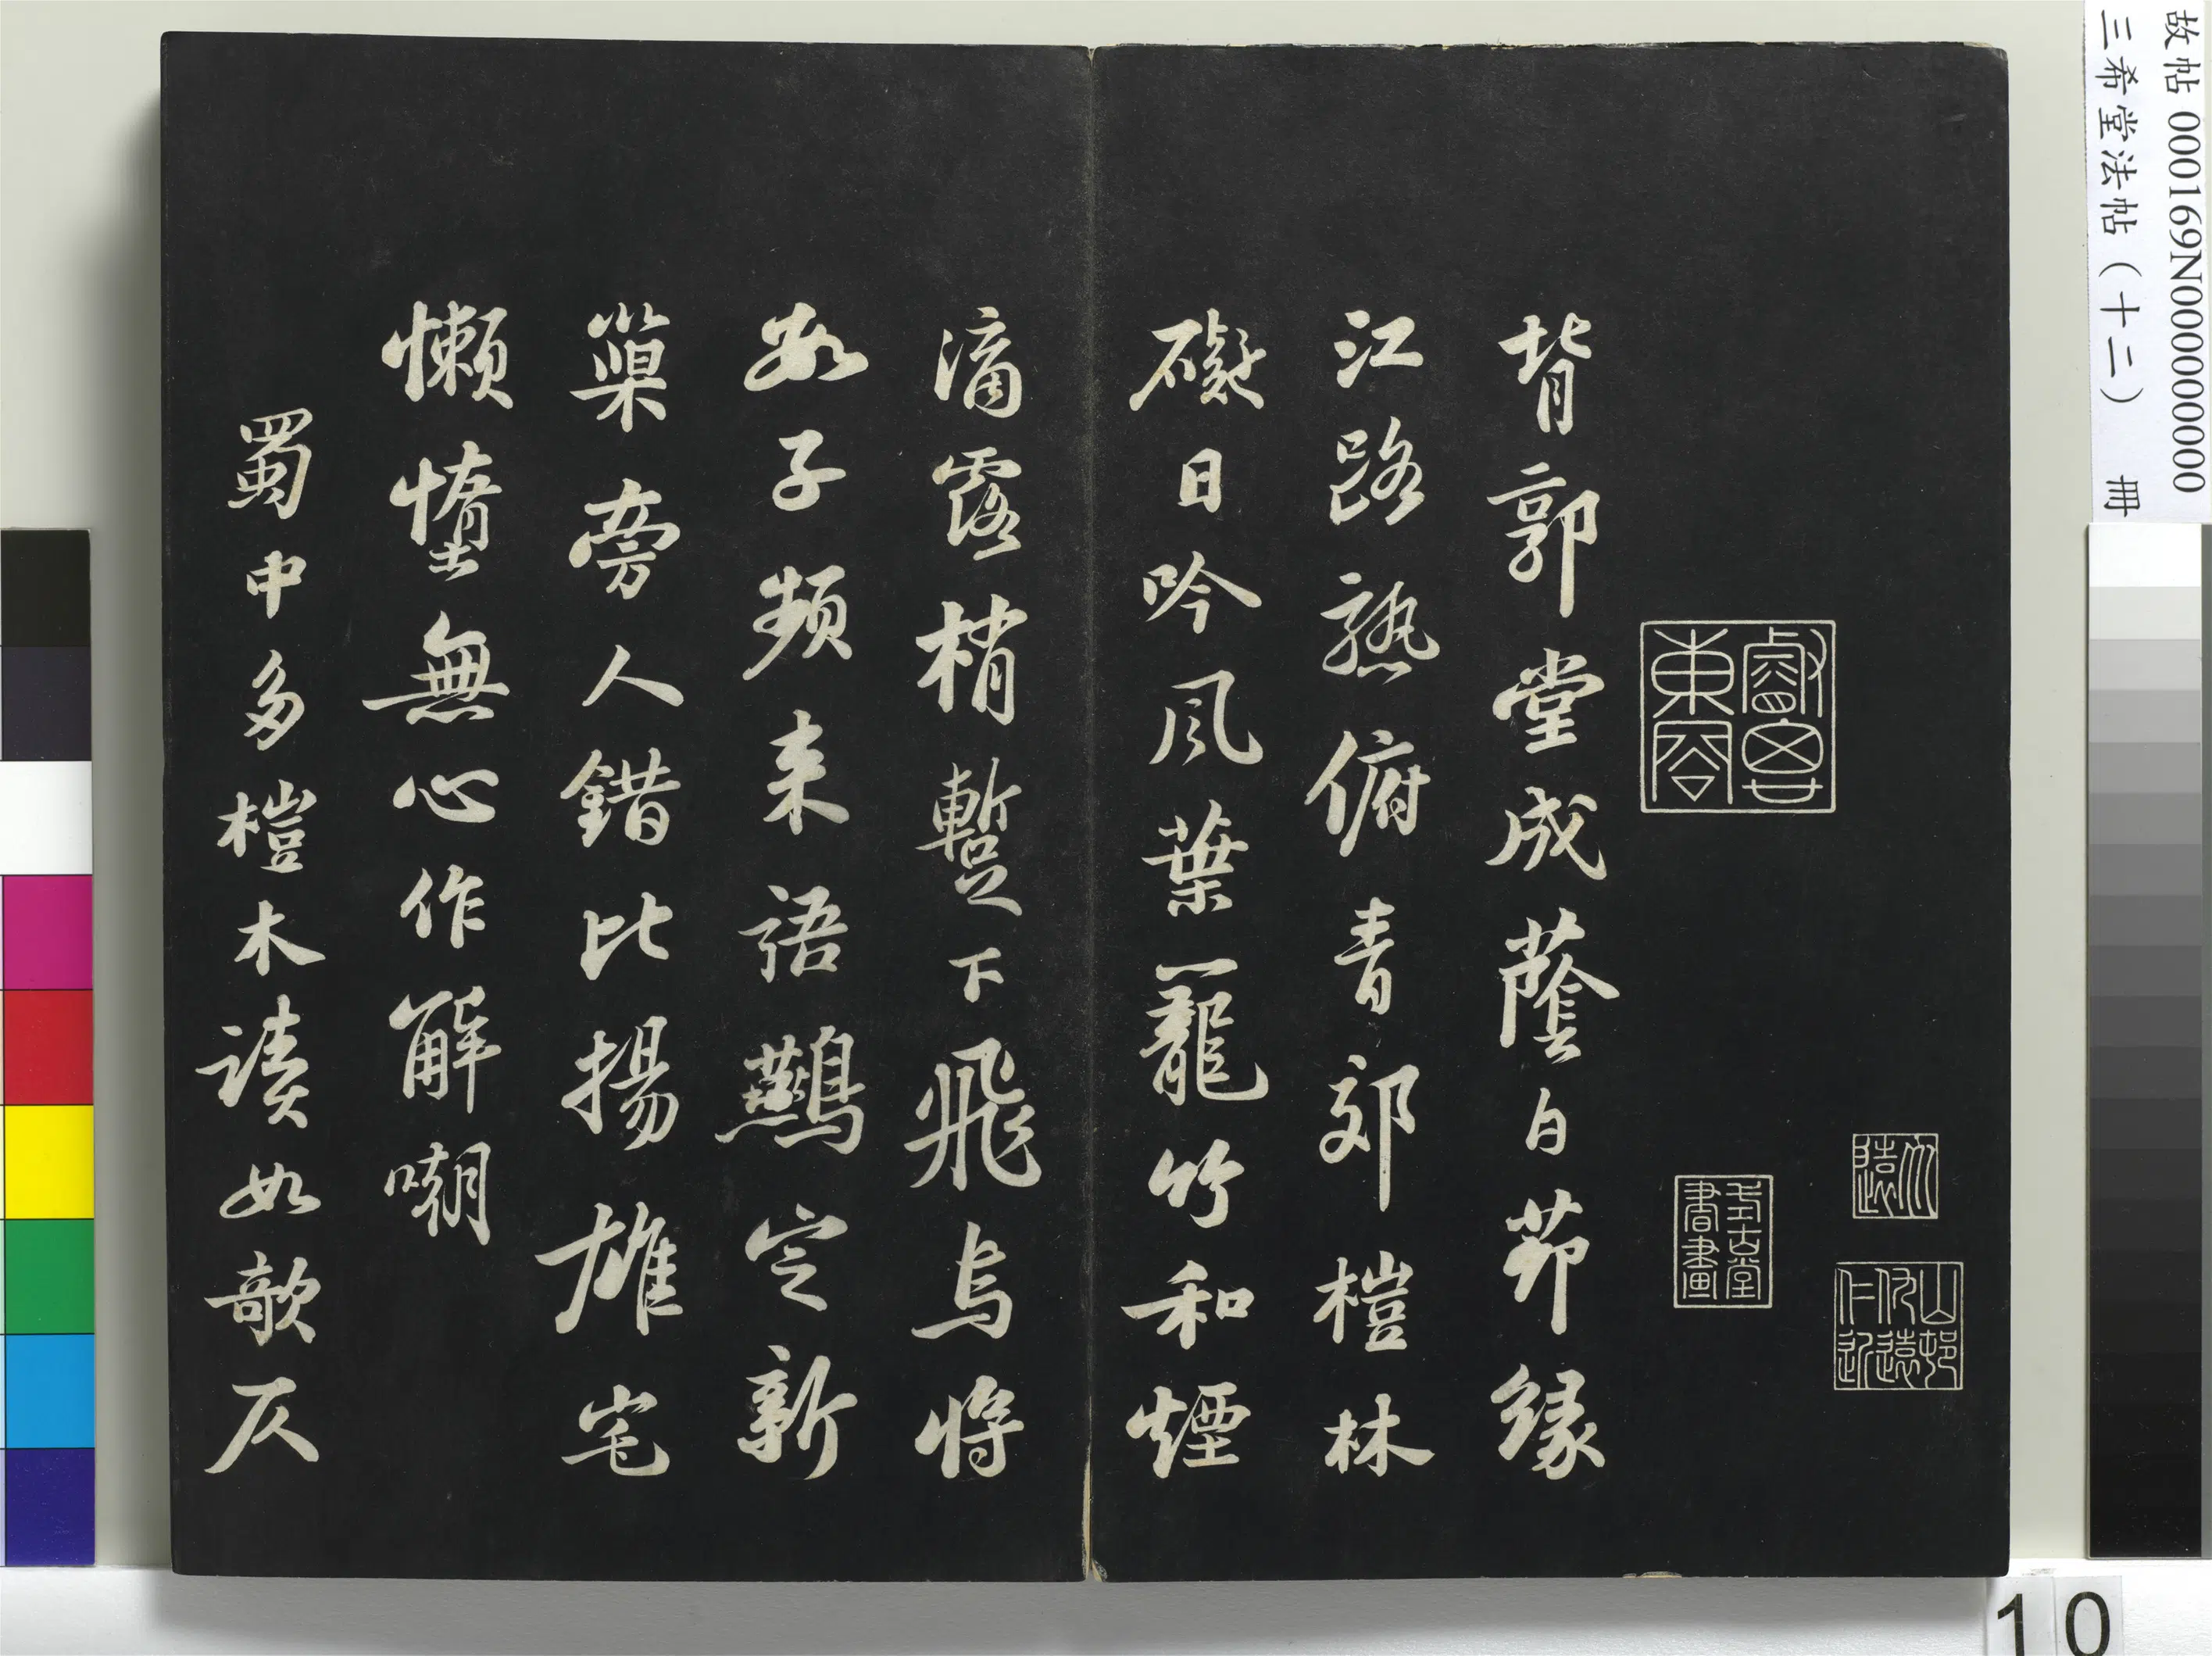 故帖 000169N000000000
三希堂法帖（十二） 冊
山邨仇遠仁近
式古堂書畫
背郭堂成蔭白茆緣
江路熟俯青郊榿林
礙日吟風葉籠竹和煙
滴露梢暫下飛烏將
數子頻来語鷰定新
巢旁人錯比揚雄宅
懶惰無心作解嘲
蜀中多榿木讀如欹仄
10